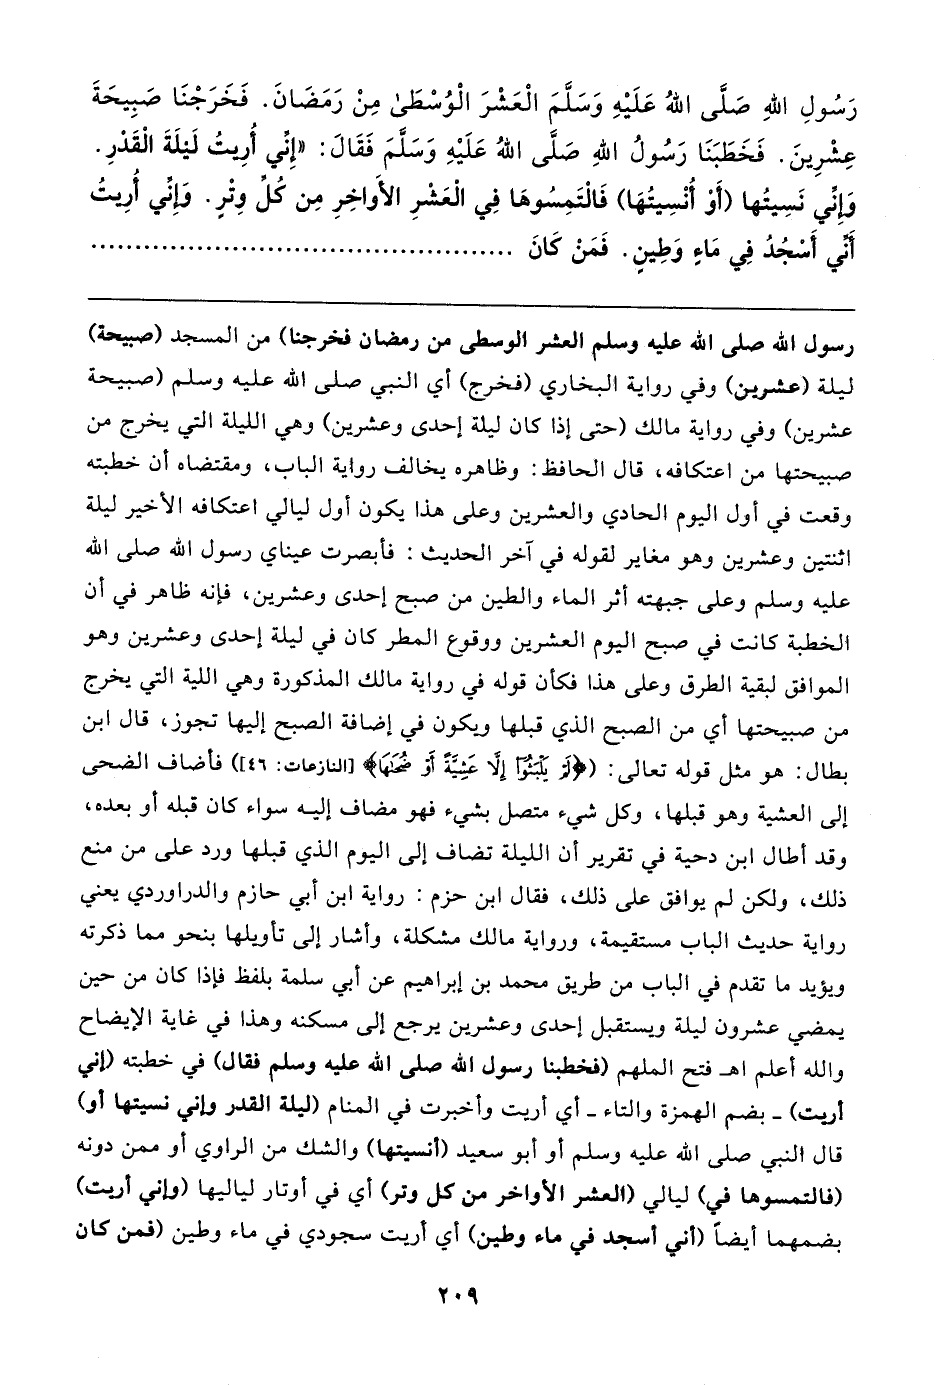 رَسُولِ اللهِ صَلَّى اللهُ عَلَيْهِ وَسَلَّمَ الْعَشْرَ الْوُسْطَىٰ مِنْ رَمَضَانَ. فَخَرَجْنَا صَبِيحَةَ
عِشْرِينَ. فَخَطَبَنَا رَسُولُ اللهِ صَلَّى اللهُ عَلَيْهِ وَسَلَّمَ فَقَالَ: «إِنِّي أُرِيتُ لَيْلَةَ الْقَدْرِ.
وَإِنِّي نَسِيتُها (أَوْ أُنْسِيتُهَا) فَالْتَمِسُوهَا فِي الْعَشْرِ الأَوَاخِرِ مِن كُلِّ وِتْرٍ. وَإِنِّي أُرِيتُ
أَنِّي أَسْجُدُ فِي مَاءٍ وَطِينٍ. فَمَنْ كَانَ ................................................
رسول الله صلى الله عليه وسلم العشر الوسطى من رمضان فخرجنا) من المسجد (صبيحة)
ليلة (عشرين) وفي رواية البخاري (فخرج) أي النبي صلى الله عليه وسلم (صبيحة
عشرين) وفي رواية مالك (حتى إذا كان ليلة إحدى وعشرين) وهي الليلة التي يخرج من
صبيحتها من اعتكافه، قال الحافظ: وظاهره يخالف رواية الباب، ومقتضاه أن خطبته
وقعت في أول اليوم الحادي والعشرين وعلى هذا يكون أول ليالي اعتكافه الأخير ليلة
اثنتين وعشرين وهو مغاير لقوله في آخر الحديث: فأبصرت عيناي رسول الله صلى الله
عليه وسلم وعلى جبهته أثر الماء والطين من صبح إحدى وعشرين، فإنه ظاهر في أن
الخطبة كانت في صبح اليوم العشرين ووقوع المطر كان في ليلة إحدى وعشرين وهو
الموافق لبقية الطرق وعلى هذا فكأن قوله في رواية مالك المذكورة وهي اللية التي يخرج
من صبيحتها أي من الصبح الذي قبلها ويكون في إضافة الصبح إليها تجوز، قال ابن
بطال: هو مثل قوله تعالى: (﴿لَمْ يَلْبَثُوٓا۟ إِلَّا عَشِيَّةً أَوْ ضُحَىٰهَا﴾ [النازعات: ٤٦]) فأضاف الضحى
إلى العشية وهو قبلها، وكل شيء متصل بشيء فهو مضاف إليه سواء كان قبله أو بعده،
وقد أطال ابن دحية في تقرير أن الليلة تضاف إلى اليوم الذي قبلها ورد على من منع
ذلك، ولكن لم يوافق على ذلك، فقال ابن حزم: رواية ابن أبي حازم والدراوردي يعني
رواية حديث الباب مستقيمة، ورواية مالك مشكلة، وأشار إلى تأويلها بنحو مما ذكرته
ويؤيد ما تقدم في الباب من طريق محمد بن إبراهيم عن أبي سلمة بلفظ فإذا كان من حين
يمضي عشرون ليلة ويستقبل إحدى وعشرين يرجع إلى مسكنه وهذا في غاية الإيضاح
والله أعلم اهـ فتح الملهم (فخطبنا رسول الله صلى الله عليه وسلم فقال) في خطبته (إني
أريت) ـ بضم الهمزة والتاء ـ أي أريت وأخبرت في المنام (ليلة القدر وإني نسيتها أو)
قال النبي صلى الله عليه وسلم أو أبو سعيد (أنسيتها) والشك من الراوي أو ممن دونه
(فالتمسوها في) ليالي (العشر الأواخر من كل وتر) أي في أوتار لياليها (وإني أريت)
بضمهما أيضاً (أني أسجد في ماء وطين) أي أريت سجودي في ماء وطين (فمن كان
٢٠٩